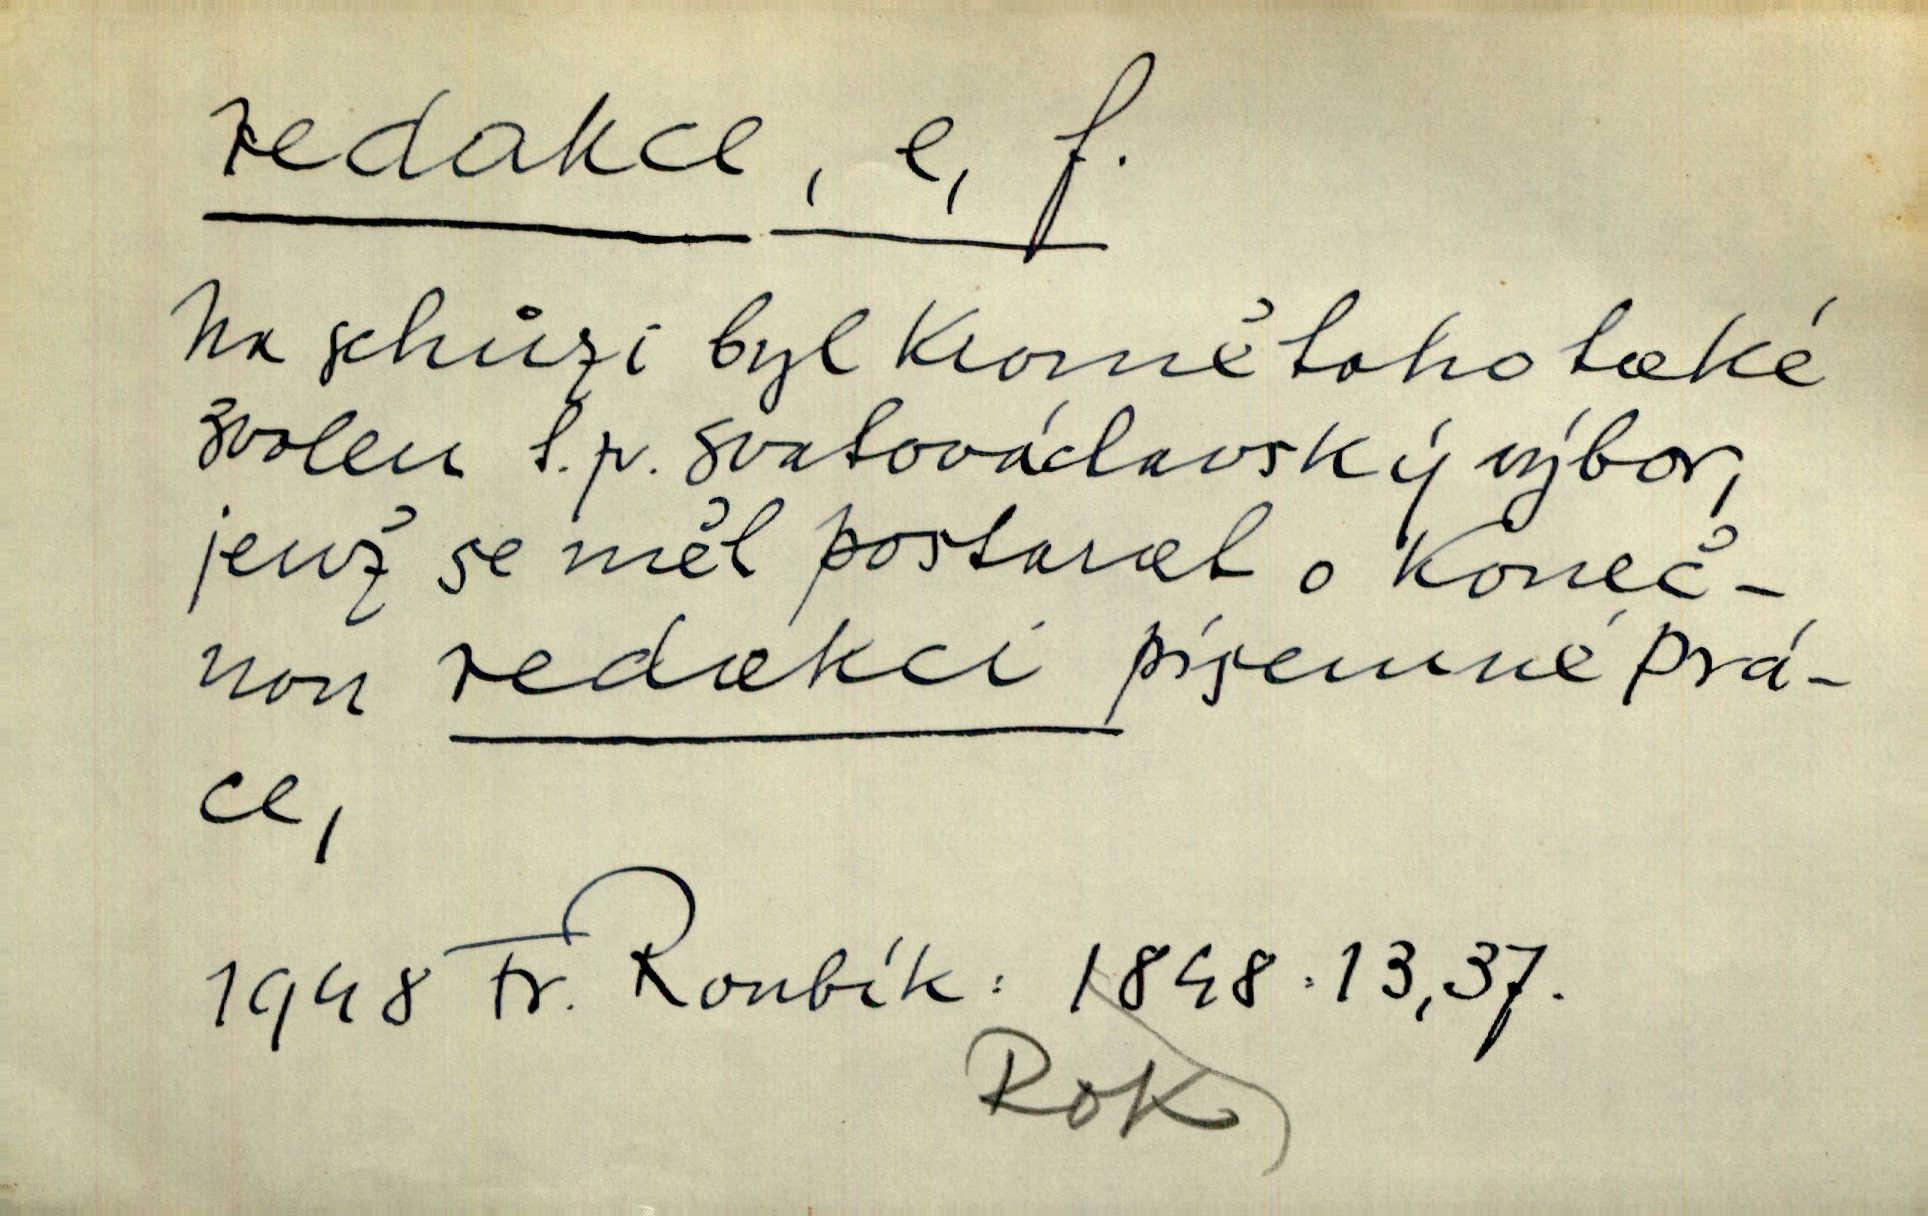 redakce, e, f.
Na schůzi byl kromě toho také
zvolen t. zv. svatováclavský výbor,
jenž se měl postarat o koneč-
nou redakci písemné prá-
ce,
1948 Fr. Roubík: 1848: 13,37.
Rok